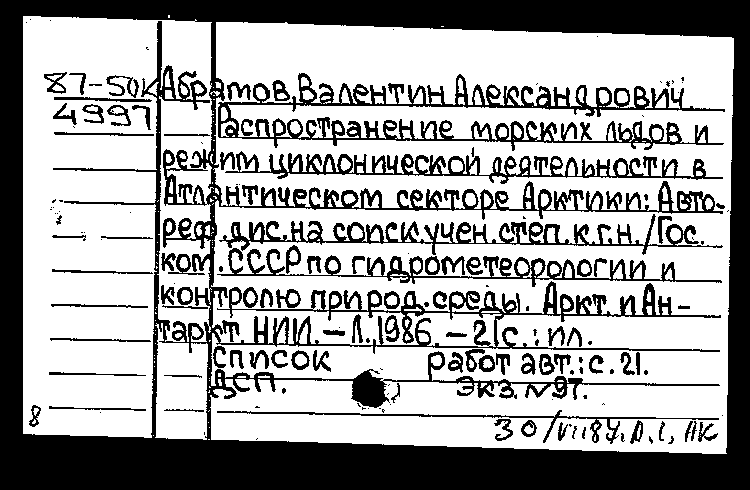 87-50к Абрамов, Валентин Александрович.
4997 Распространение морских льдов и
режим циклонической деятельности в
Атлантическом секторе Арктики: Авто-
реф. дис. на соиск. учен. степ. к.г.н. / Гос.
ком. СССР по гидрометеорологии и
контролю природ. среды. Аркт. и Ан-
таркт. НИИ. – Л., 1986. – 21 с. : ил.
Список работ авт.: с. 21.
ДСП. Экз. № 97.
8
30/VII 87.